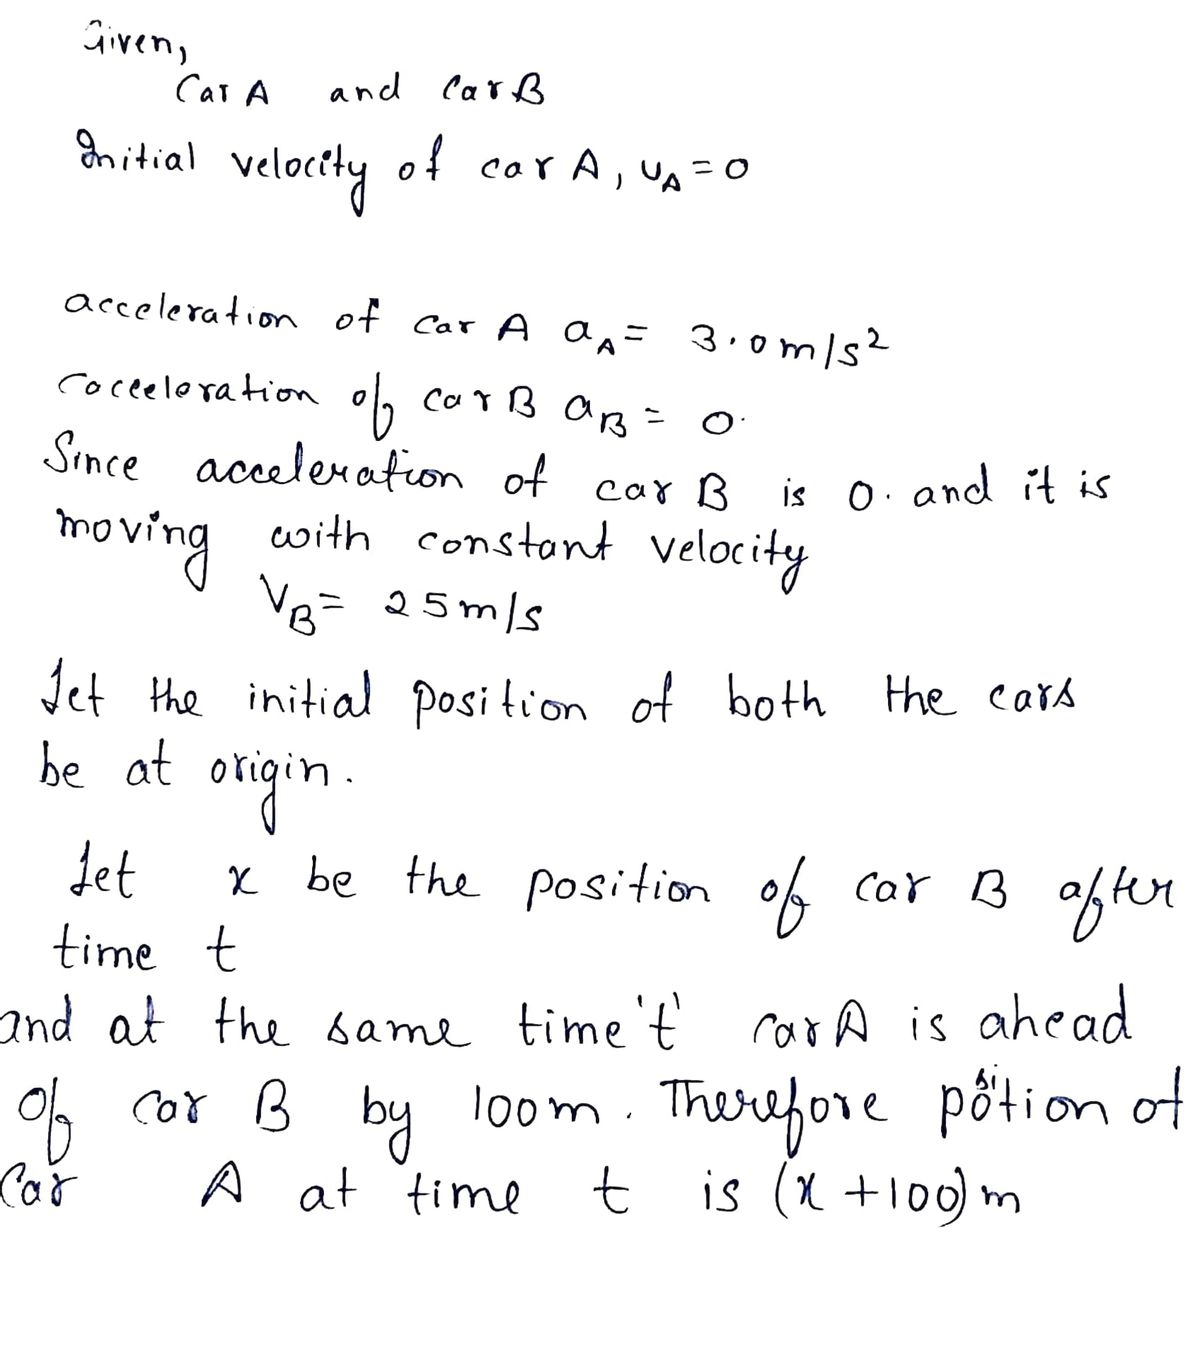 Given,
Car A and Car B
Initial velocity of car A, u_A = 0
acceleration of car A a_A = 3.0 m/s²
cacceeloration of car B a_B = 0.
Since acceleration of car B is 0. and it is
moving with constant velocity
V_B = 25 m/s
Let the initial position of both the cars
be at origin.
Let x be the position of car B after
time t
and at the same time 't' car A is ahead
of car B by 100m. Therefore position of
Car A at time t is (x + 100) m